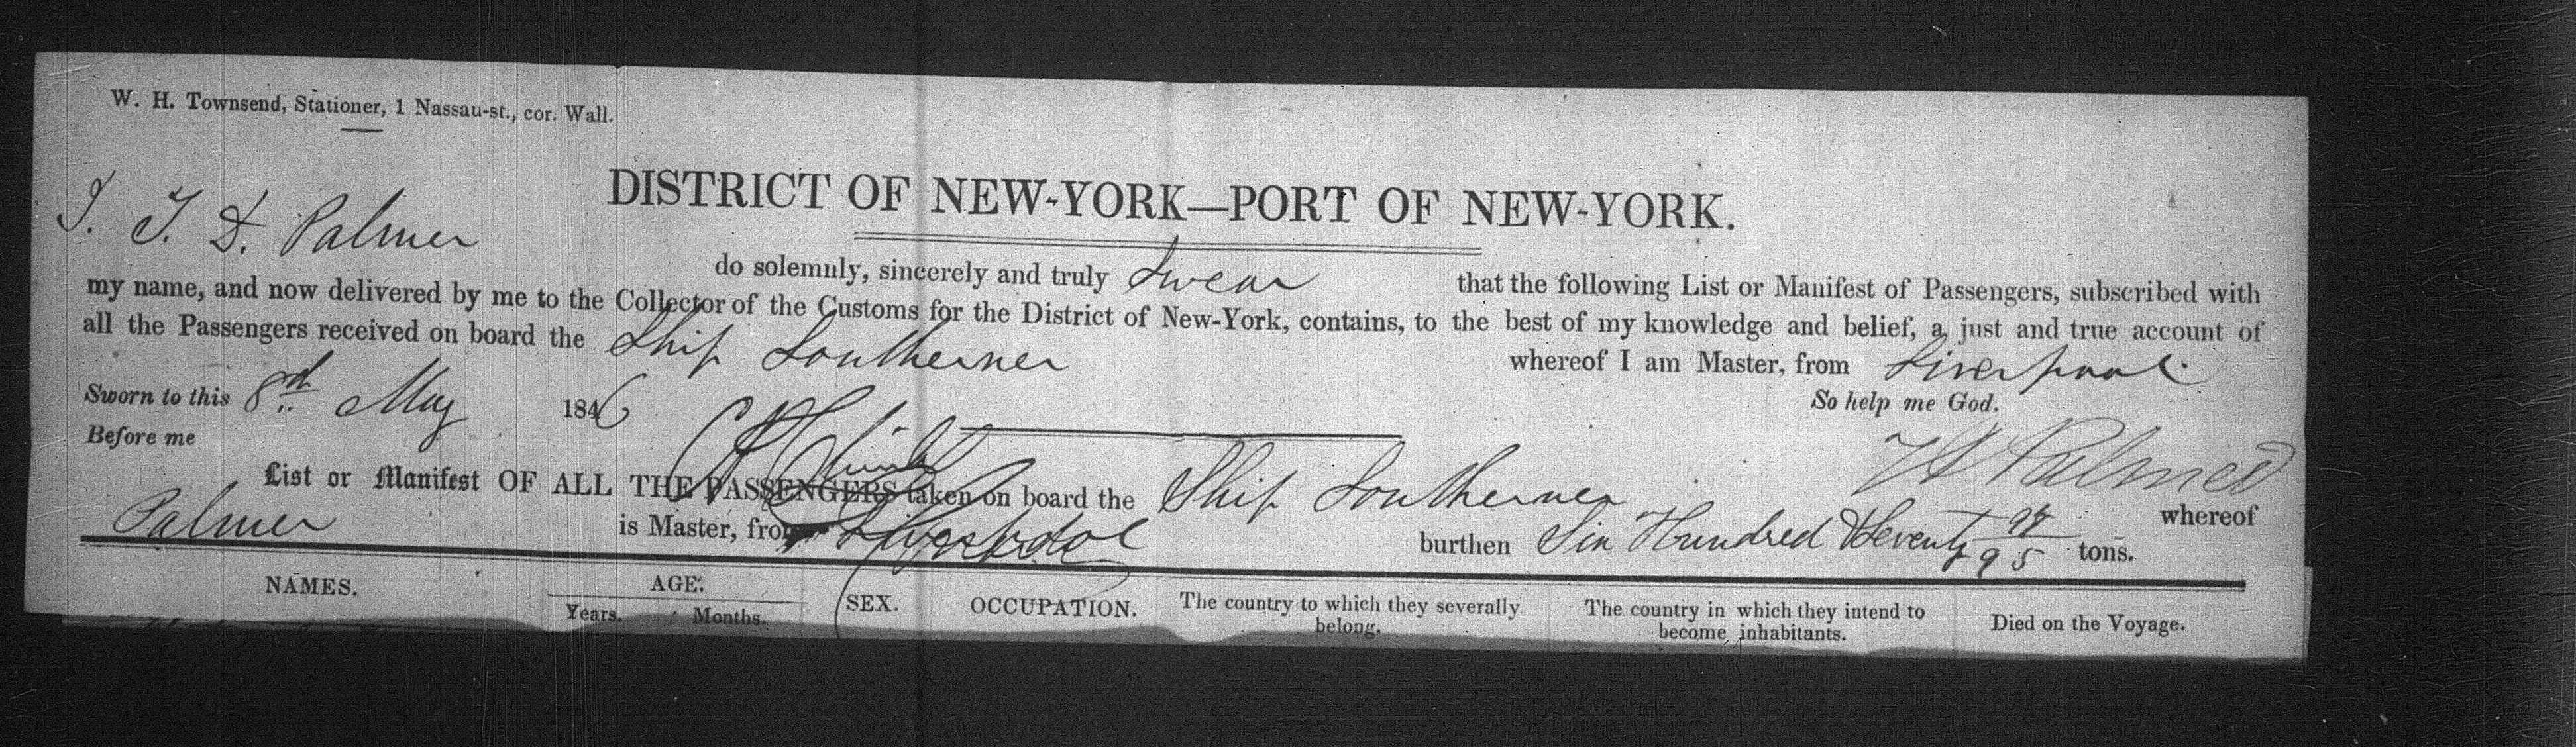 W. H. Townsend, Stationer, 1 Nassau-st., cor. Wall.
DISTRICT OF NEW-YORK—PORT OF NEW-YORK.
I. T. D. Palmer do solemnly, sincerely and truly Swear that the following List or Manifest of Passengers, subscribed with
my name, and now delivered by me to the Collector of the Customs for the District of New-York, contains, to the best of my knowledge and belief, a just and true account of
all the Passengers received on board the Ship Southerner whereof I am Master, from Liverpool
Sworn to this 8th May 1846 So help me God.
Before me
Palmer
List or Manifest OF ALL THE PASSENGERS taken on board the Ship Southerner whereof
Palmer is Master, from Liverpool burthen Six Hundred & Seventy 94/95 tons.
NAMES. AGE. SEX. OCCUPATION. The country to which they severally belong. The country in which they intend to become inhabitants. Died on the Voyage.
Years. Months.